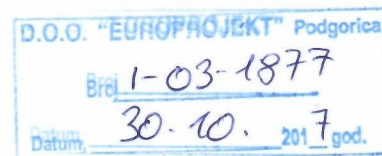 D.O.O. "EUROPROJEKT" Podgorica
Broj 1-03-1877
Datum, 30. 10. 2017 god.